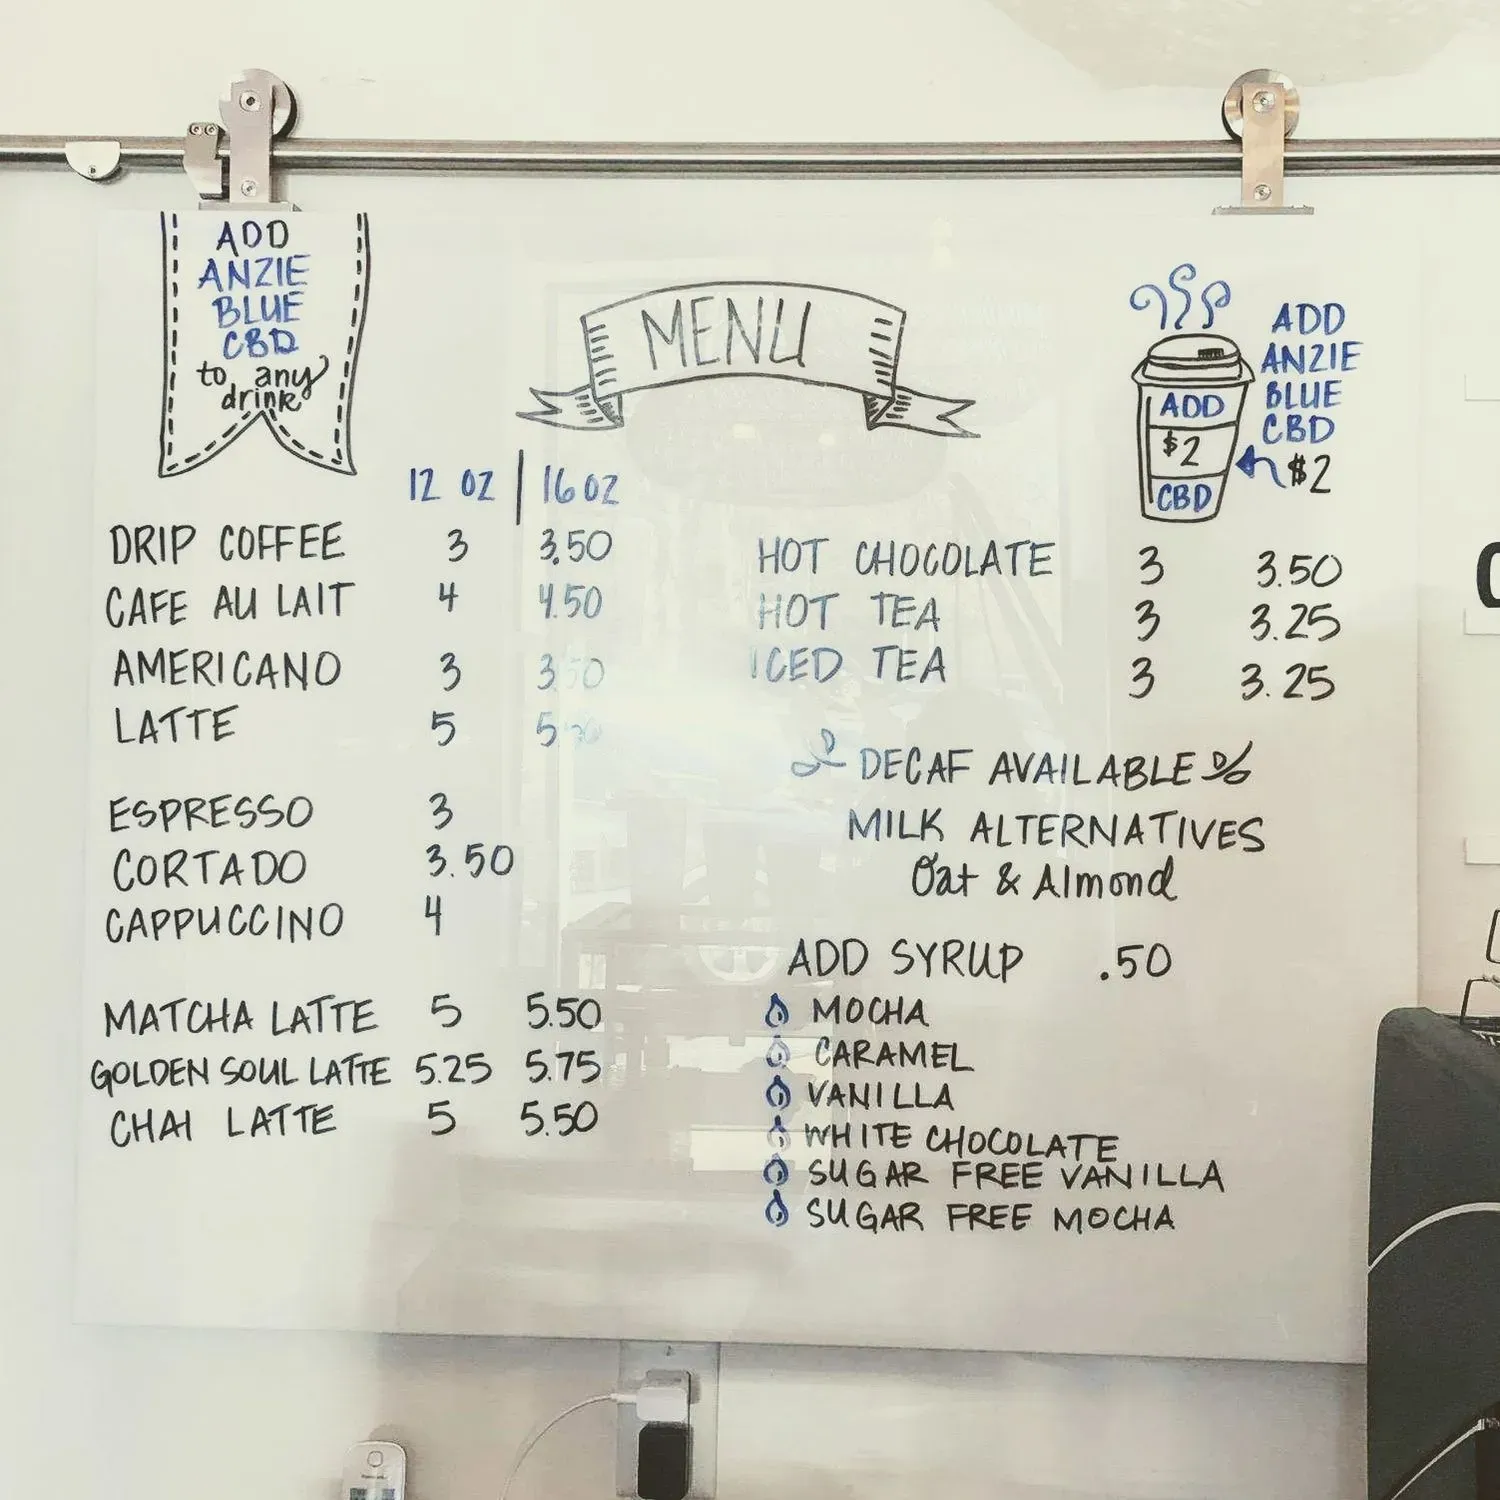 ADD
ANZIE
BLUE
CBD
to any
drink
MENU
ADD
$2
CBD
ADD
ANZIE
BLUE
CBD
$2
12 OZ | 16 OZ
DRIP COFFEE 3 3.50
CAFE AU LAIT 4 4.50
AMERICANO 3 3.50
LATTE 5 5.50
ESPRESSO 3
CORTADO 3.50
CAPPUCCINO 4
MATCHA LATTE 5 5.50
GOLDEN SOUL LATTE 5.25 5.75
CHAI LATTE 5 5.50
HOT CHOCOLATE 3 3.50
HOT TEA 3 3.25
ICED TEA 3 3.25
DECAF AVAILABLE
MILK ALTERNATIVES
Oat & Almond
ADD SYRUP .50
MOCHA
CARAMEL
VANILLA
WHITE CHOCOLATE
SUGAR FREE VANILLA
SUGAR FREE MOCHA